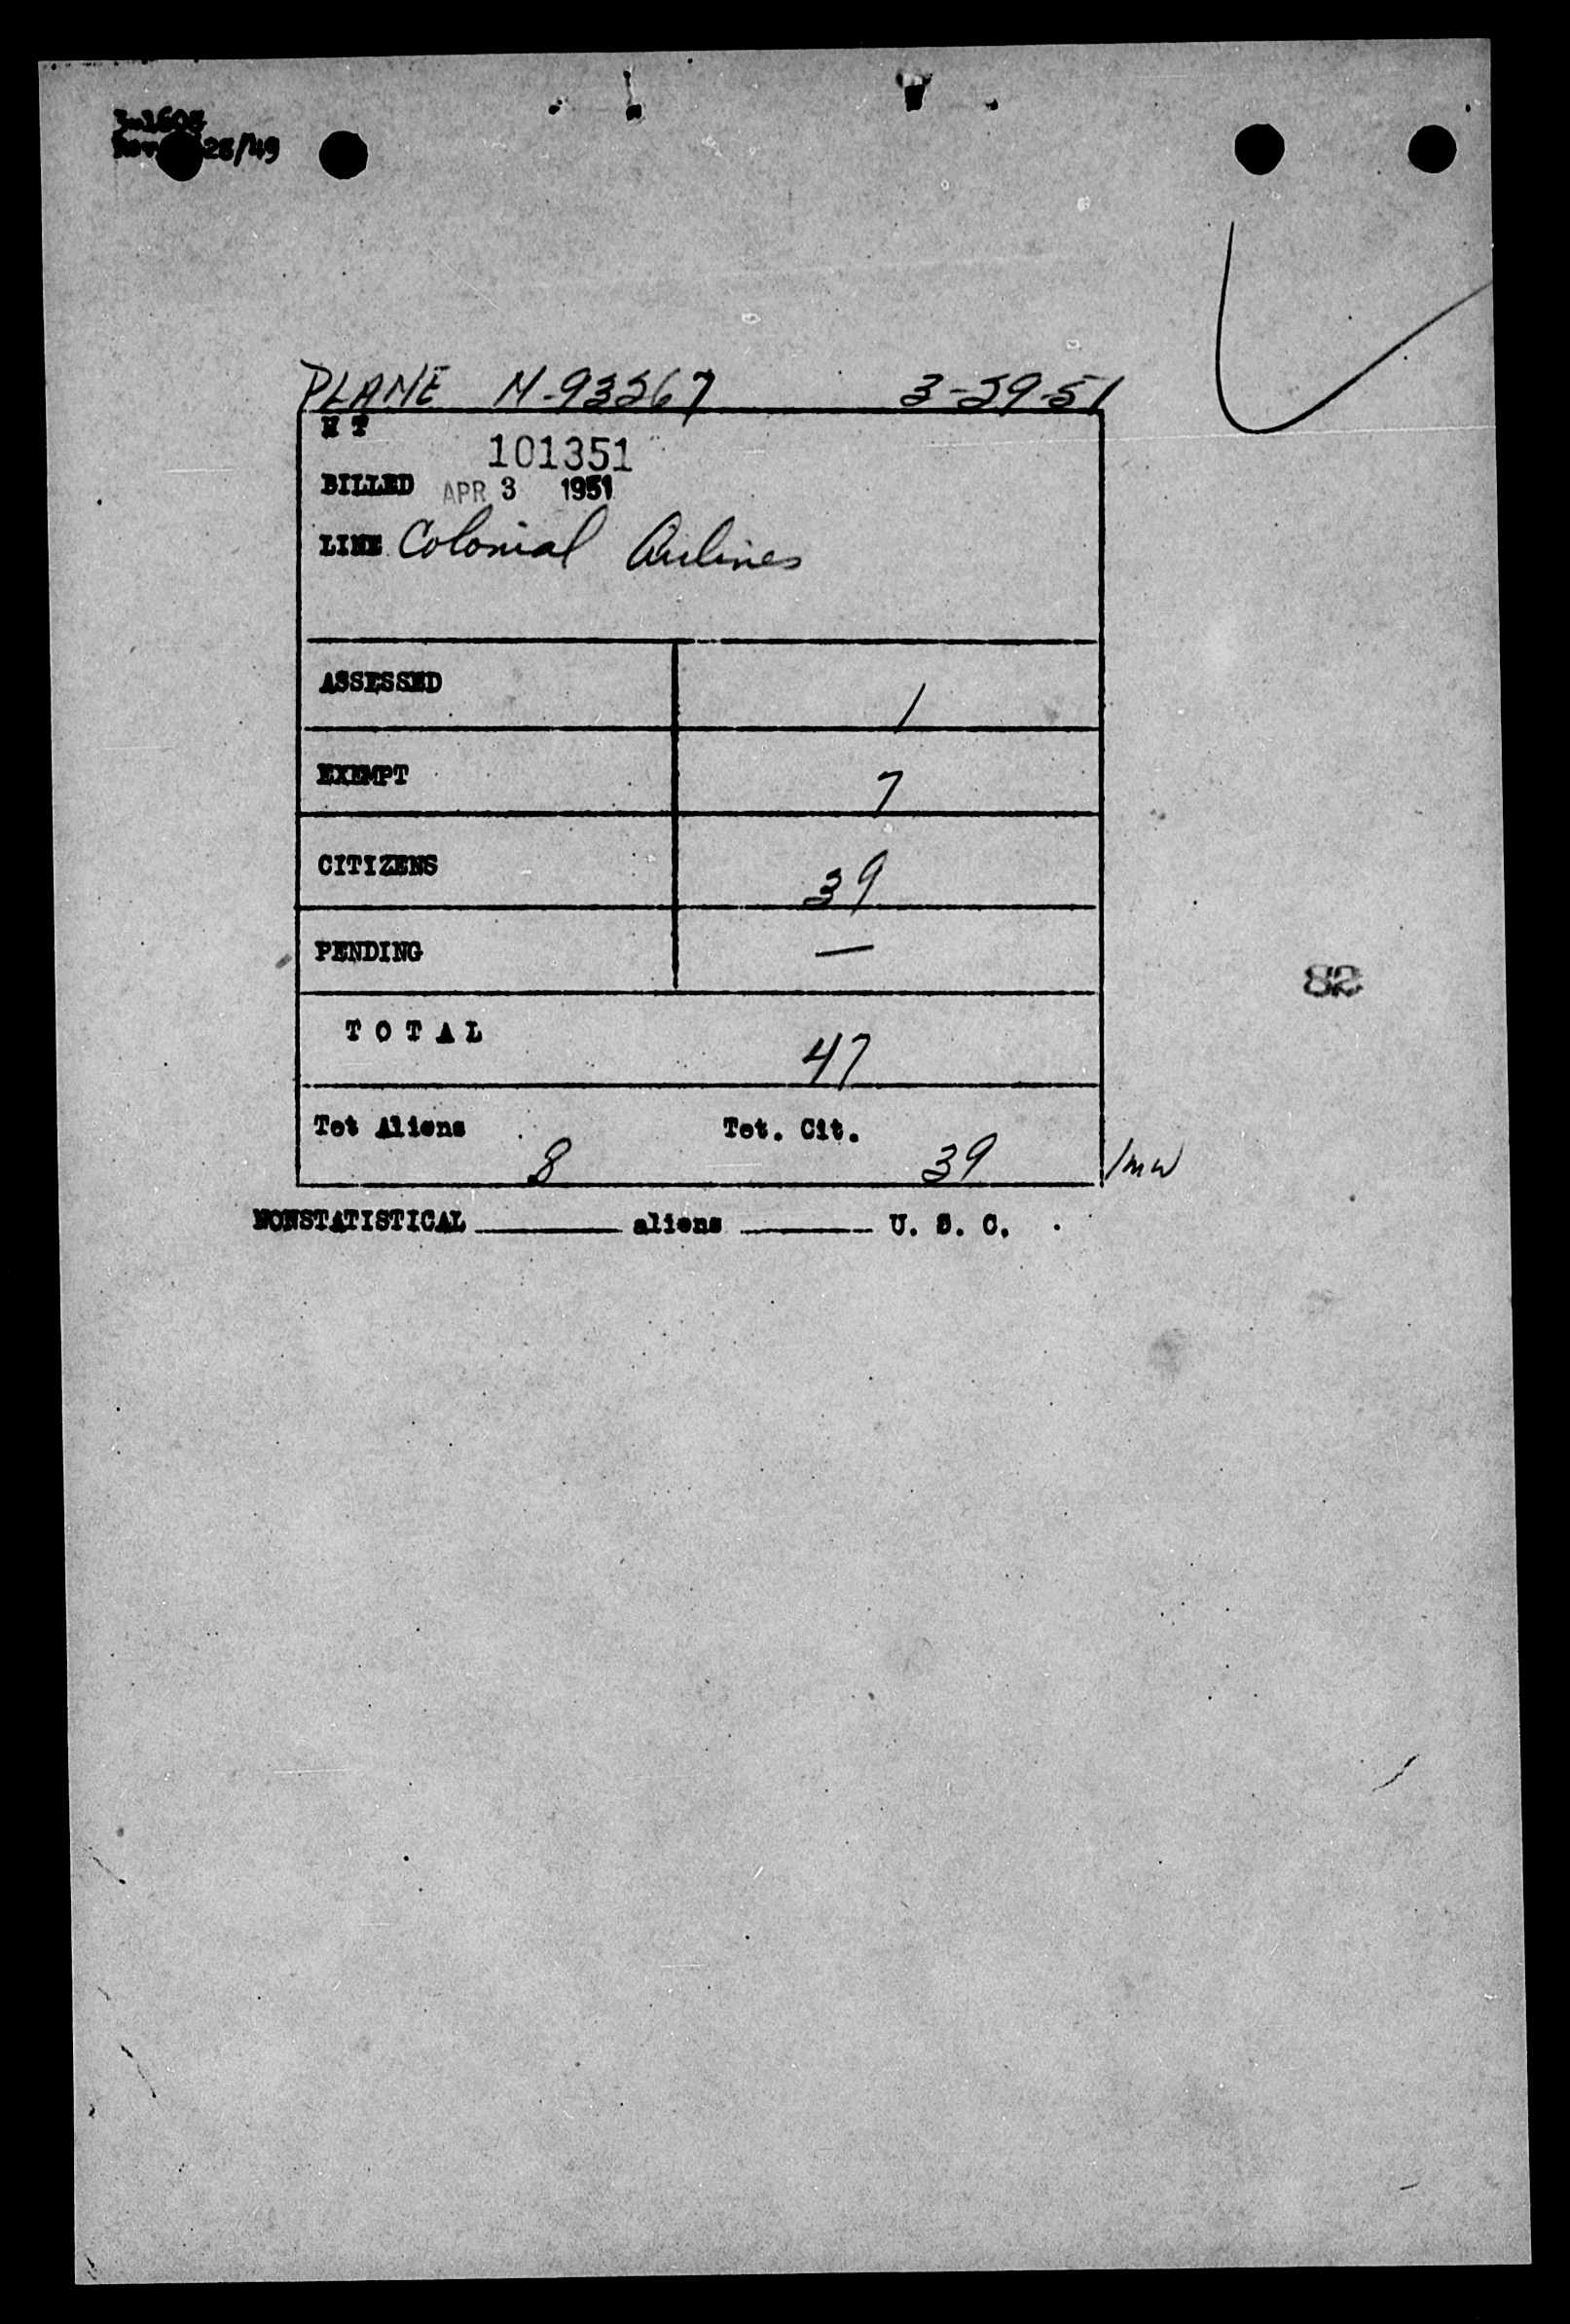 3-1605
Rev 28/49
PLANE N-93267 3-29-51
H T
101351
BILLED APR 3 1951
LINE Colonial Airlines
ASSESSED 1
EXEMPT 7
CITIZENS 39
PENDING —
82
T O T A L 47
Tot Aliens 8 Tot. Cit. 39 /mw
NONSTATISTICAL ______ aliens ______ U. S. C.